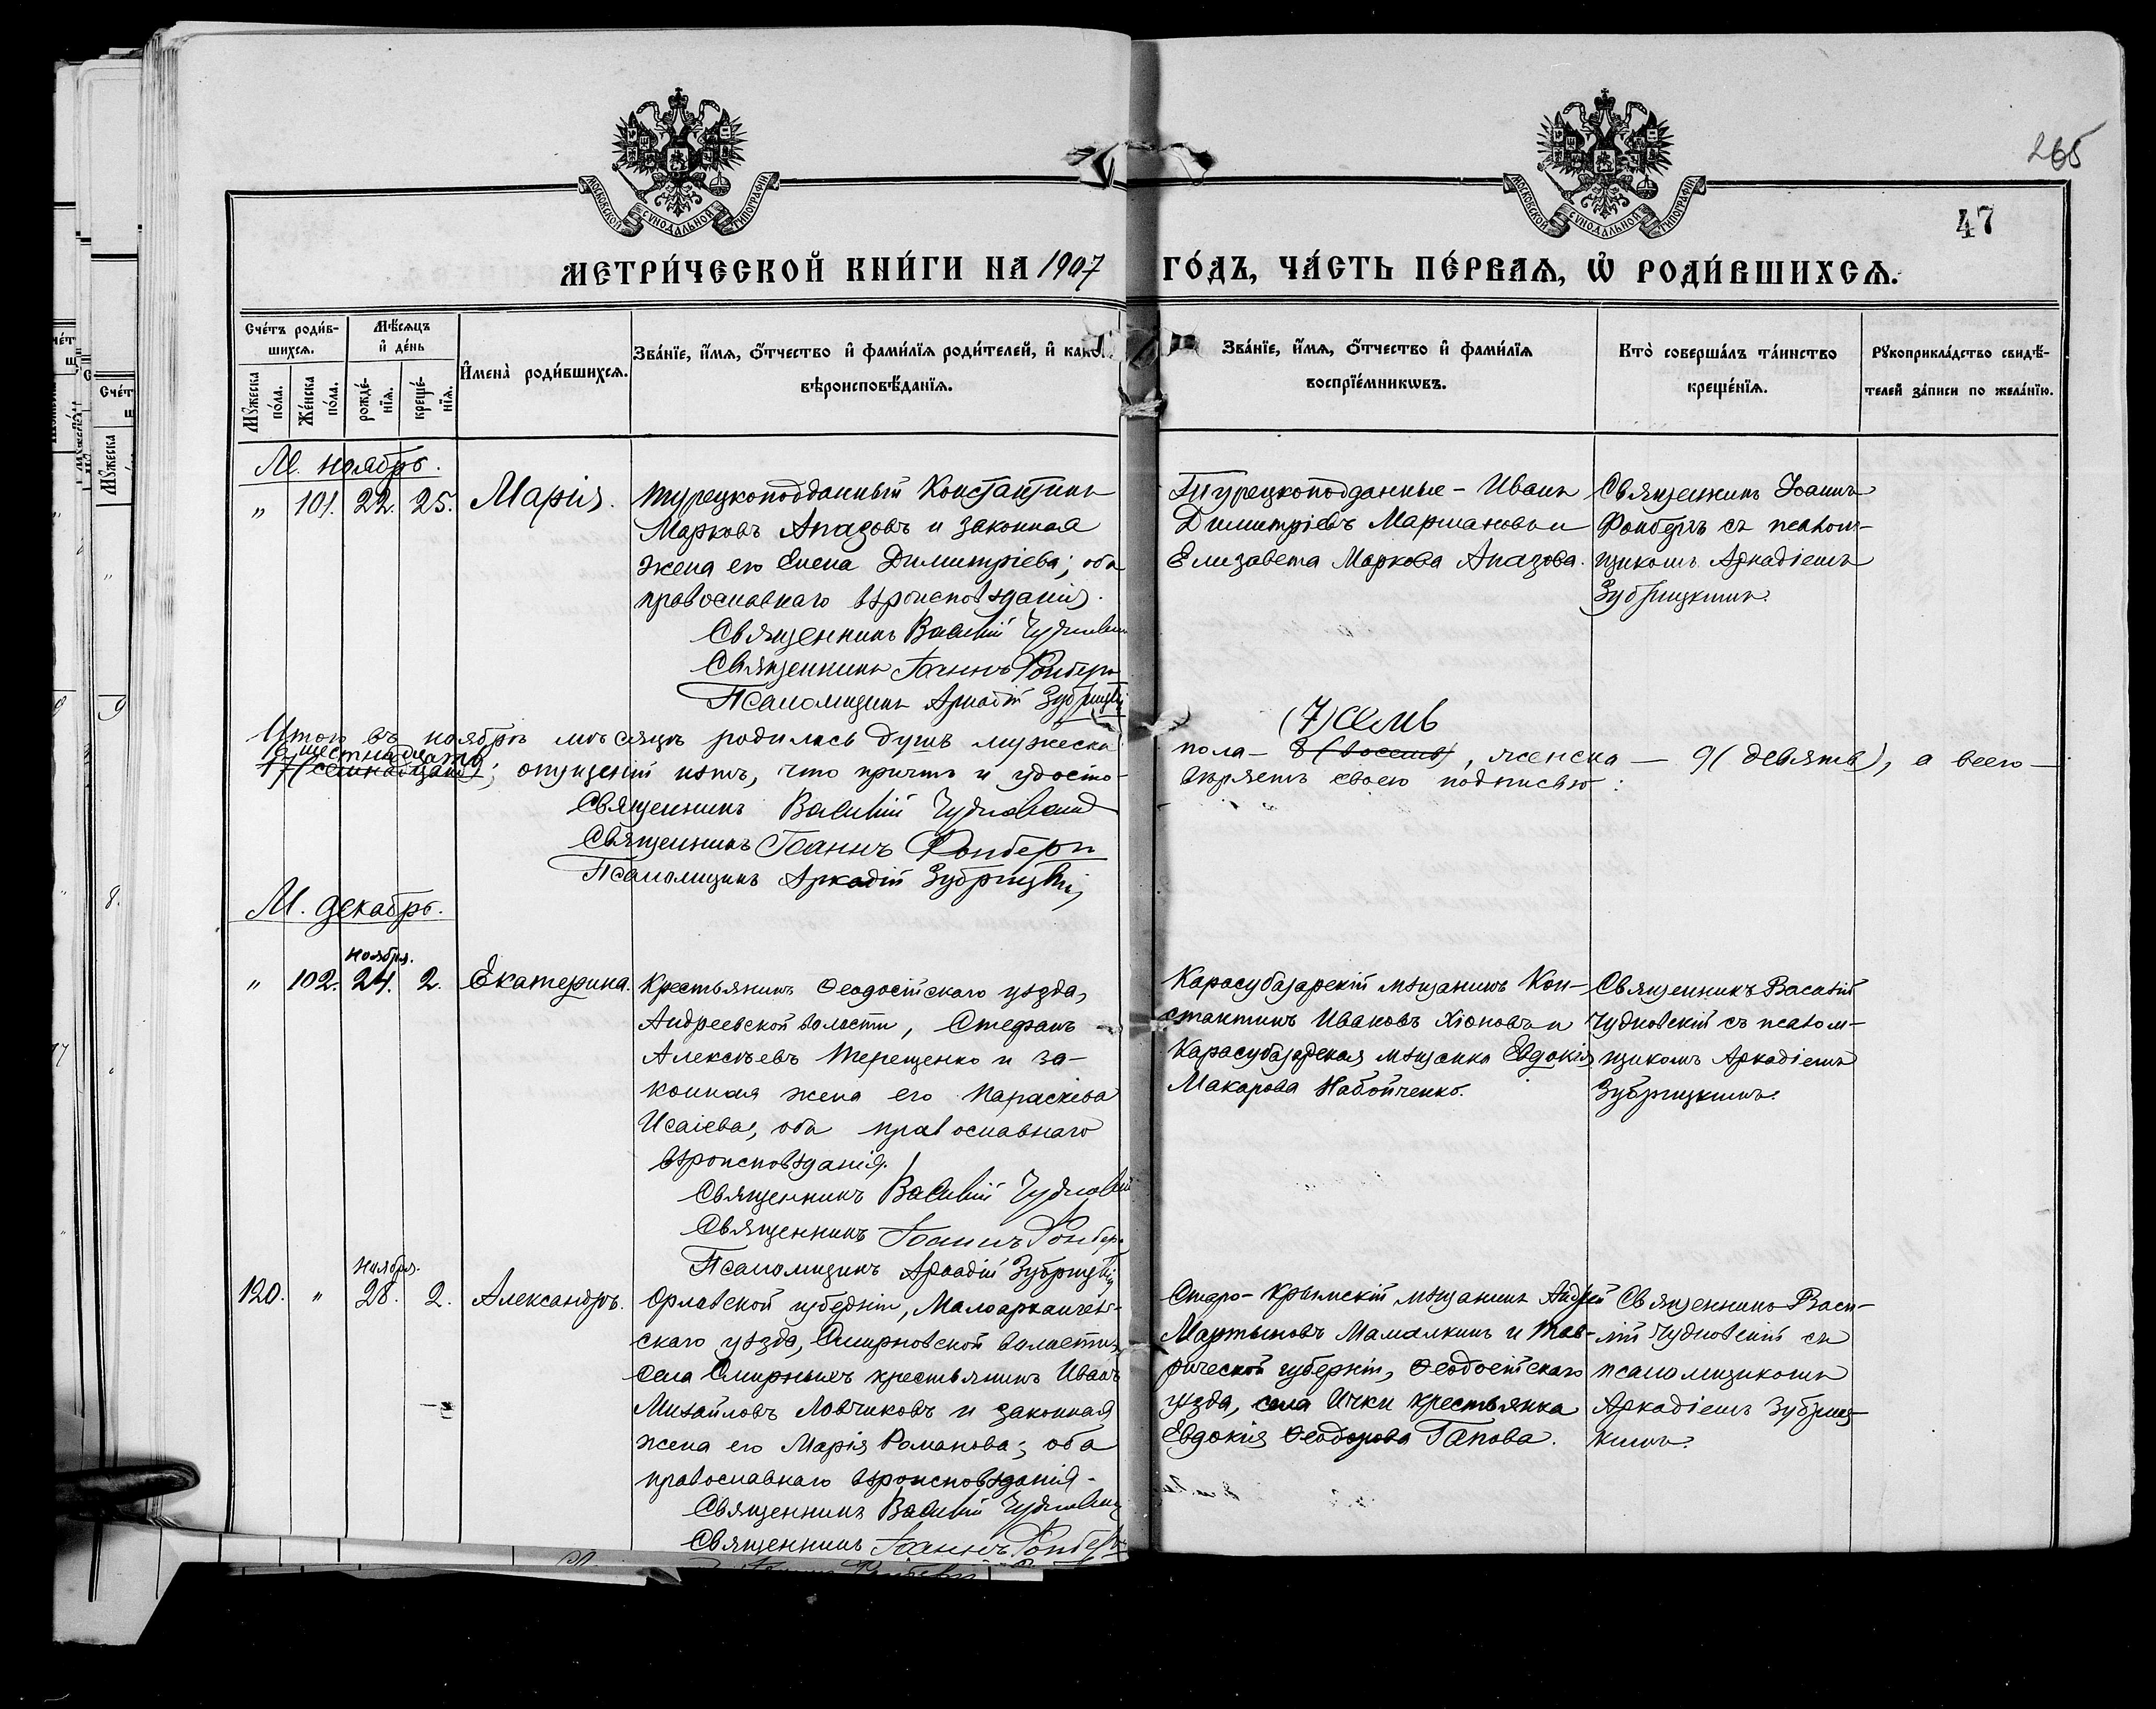 265
47
МОСКОВСКОЙ СѴНОДАЛЬНОЙ ТИПОГРАФІИ
МОСКОВСКОЙ СѴНОДАЛЬНОЙ ТИПОГРАФІИ
МЕТРИ́ЧЕСКОЙ КНИ́ГИ НА 1907 ГО́ДЪ, ЧА́СТЬ ПЕ́РВАѦ, Ѽ РОДИ́ВШИХСѦ.
Сче́тъ роди́в-
шихся.
Му́жеска по́ла.
Же́нска по́ла.
Мѣ́сяцъ и҆ де́нь
рожде́-
нїя.
креще́-
нїя.
И҆мена̀ роди́вшихся.
Зва́нїе, и҆́мя, ѻ҆́тчество и҆ фами́лїя роди́телей, и҆ како
вѣроисповѣ́данїя.
Зва́нїе, и҆́мя, ѻ҆́тчество и҆ фами́лїя
воспрїе́мникѡвъ.
Кто̀ соверша́лъ та́инство
креще́нїя.
Рꙋкоприкла́дство свидѣ́-
телей за́писи по жела́нїю.
М. ноябрь.
" 101. 22. 25. Марія.
Турецкоподданный Константинъ
Марковъ Апазовъ и законная
жена его Елена Димитріева; оба
православнаго вѣроисповѣданія.
Священникъ Василій Чудновскій
Священникъ Іоаннъ Фонбергъ
Псаломщикъ Аркадій Зубрицкій
Турецкоподданные - Иванъ
Димитріевъ и
Елизавета Маркова Апазова.
Священникъ Іоаннъ
Фонбергъ съ псалом-
щикомъ Аркадіемъ
Зубрицкимъ.
Итого въ ноябрѣ мѣсяцѣ родилось душъ мужеска
(7) семь
пола - 8 (восемь), женска - 9 (девять), а всего -
16 шестнадцать
17 (семнадцать); опущеній нѣтъ, что причтъ и удосто-
вѣряетъ своею подписью:
Священникъ Василій Чудновскій
Священникъ Іоаннъ Фонбергъ
Псаломщикъ Аркадій Зубрицкій
М. декабрь.
ноября.
" 102. 24. 2. Екатерина.
Крестьянинъ Ѳеодосійскаго уѣзда,
Андреевской волости, Стефанъ
Алексѣевъ Терещенко и за-
конная жена его Параскева
Исаіева, оба православнаго
вѣроисповѣданія.
Священникъ Василій Чудновскій
Священникъ Іоаннъ Фонбергъ
Псаломщикъ Аркадій Зубрицкій
Карасубазарскій мѣщанинъ Кон-
стантинъ Ивановъ Хіоновъ и
Карасубазарская мѣщанка Евдокія
Макарова Набойченко.
Священникъ Василій
Чудновскій съ псалом-
щикомъ Аркадіемъ
Зубрицкимъ.
ноября.
120. " 28. 2. Александръ.
Орловской губерніи, Малоархангель-
скаго уѣзда, Смирновской волости,
села Смирныхъ крестьянинъ Иванъ
Михайловъ Ловчиковъ и законная
жена его Марія Романова; оба
православнаго вѣроисповѣданія.
Священникъ Василій Чудновскій
Священникъ Іоаннъ Фонбергъ
Старо-Крымскій мѣщанинъ Андрей
Мартыновъ Мамалкинъ и Тав-
рической губерніи, Ѳеодосійскаго
уѣзда, села Ички крестьянка
Евдокія Ѳеодорова Гапова.
Священникъ Васи-
лій Чудновскій съ
псаломщикомъ
Аркадіемъ Зубриц-
кимъ.